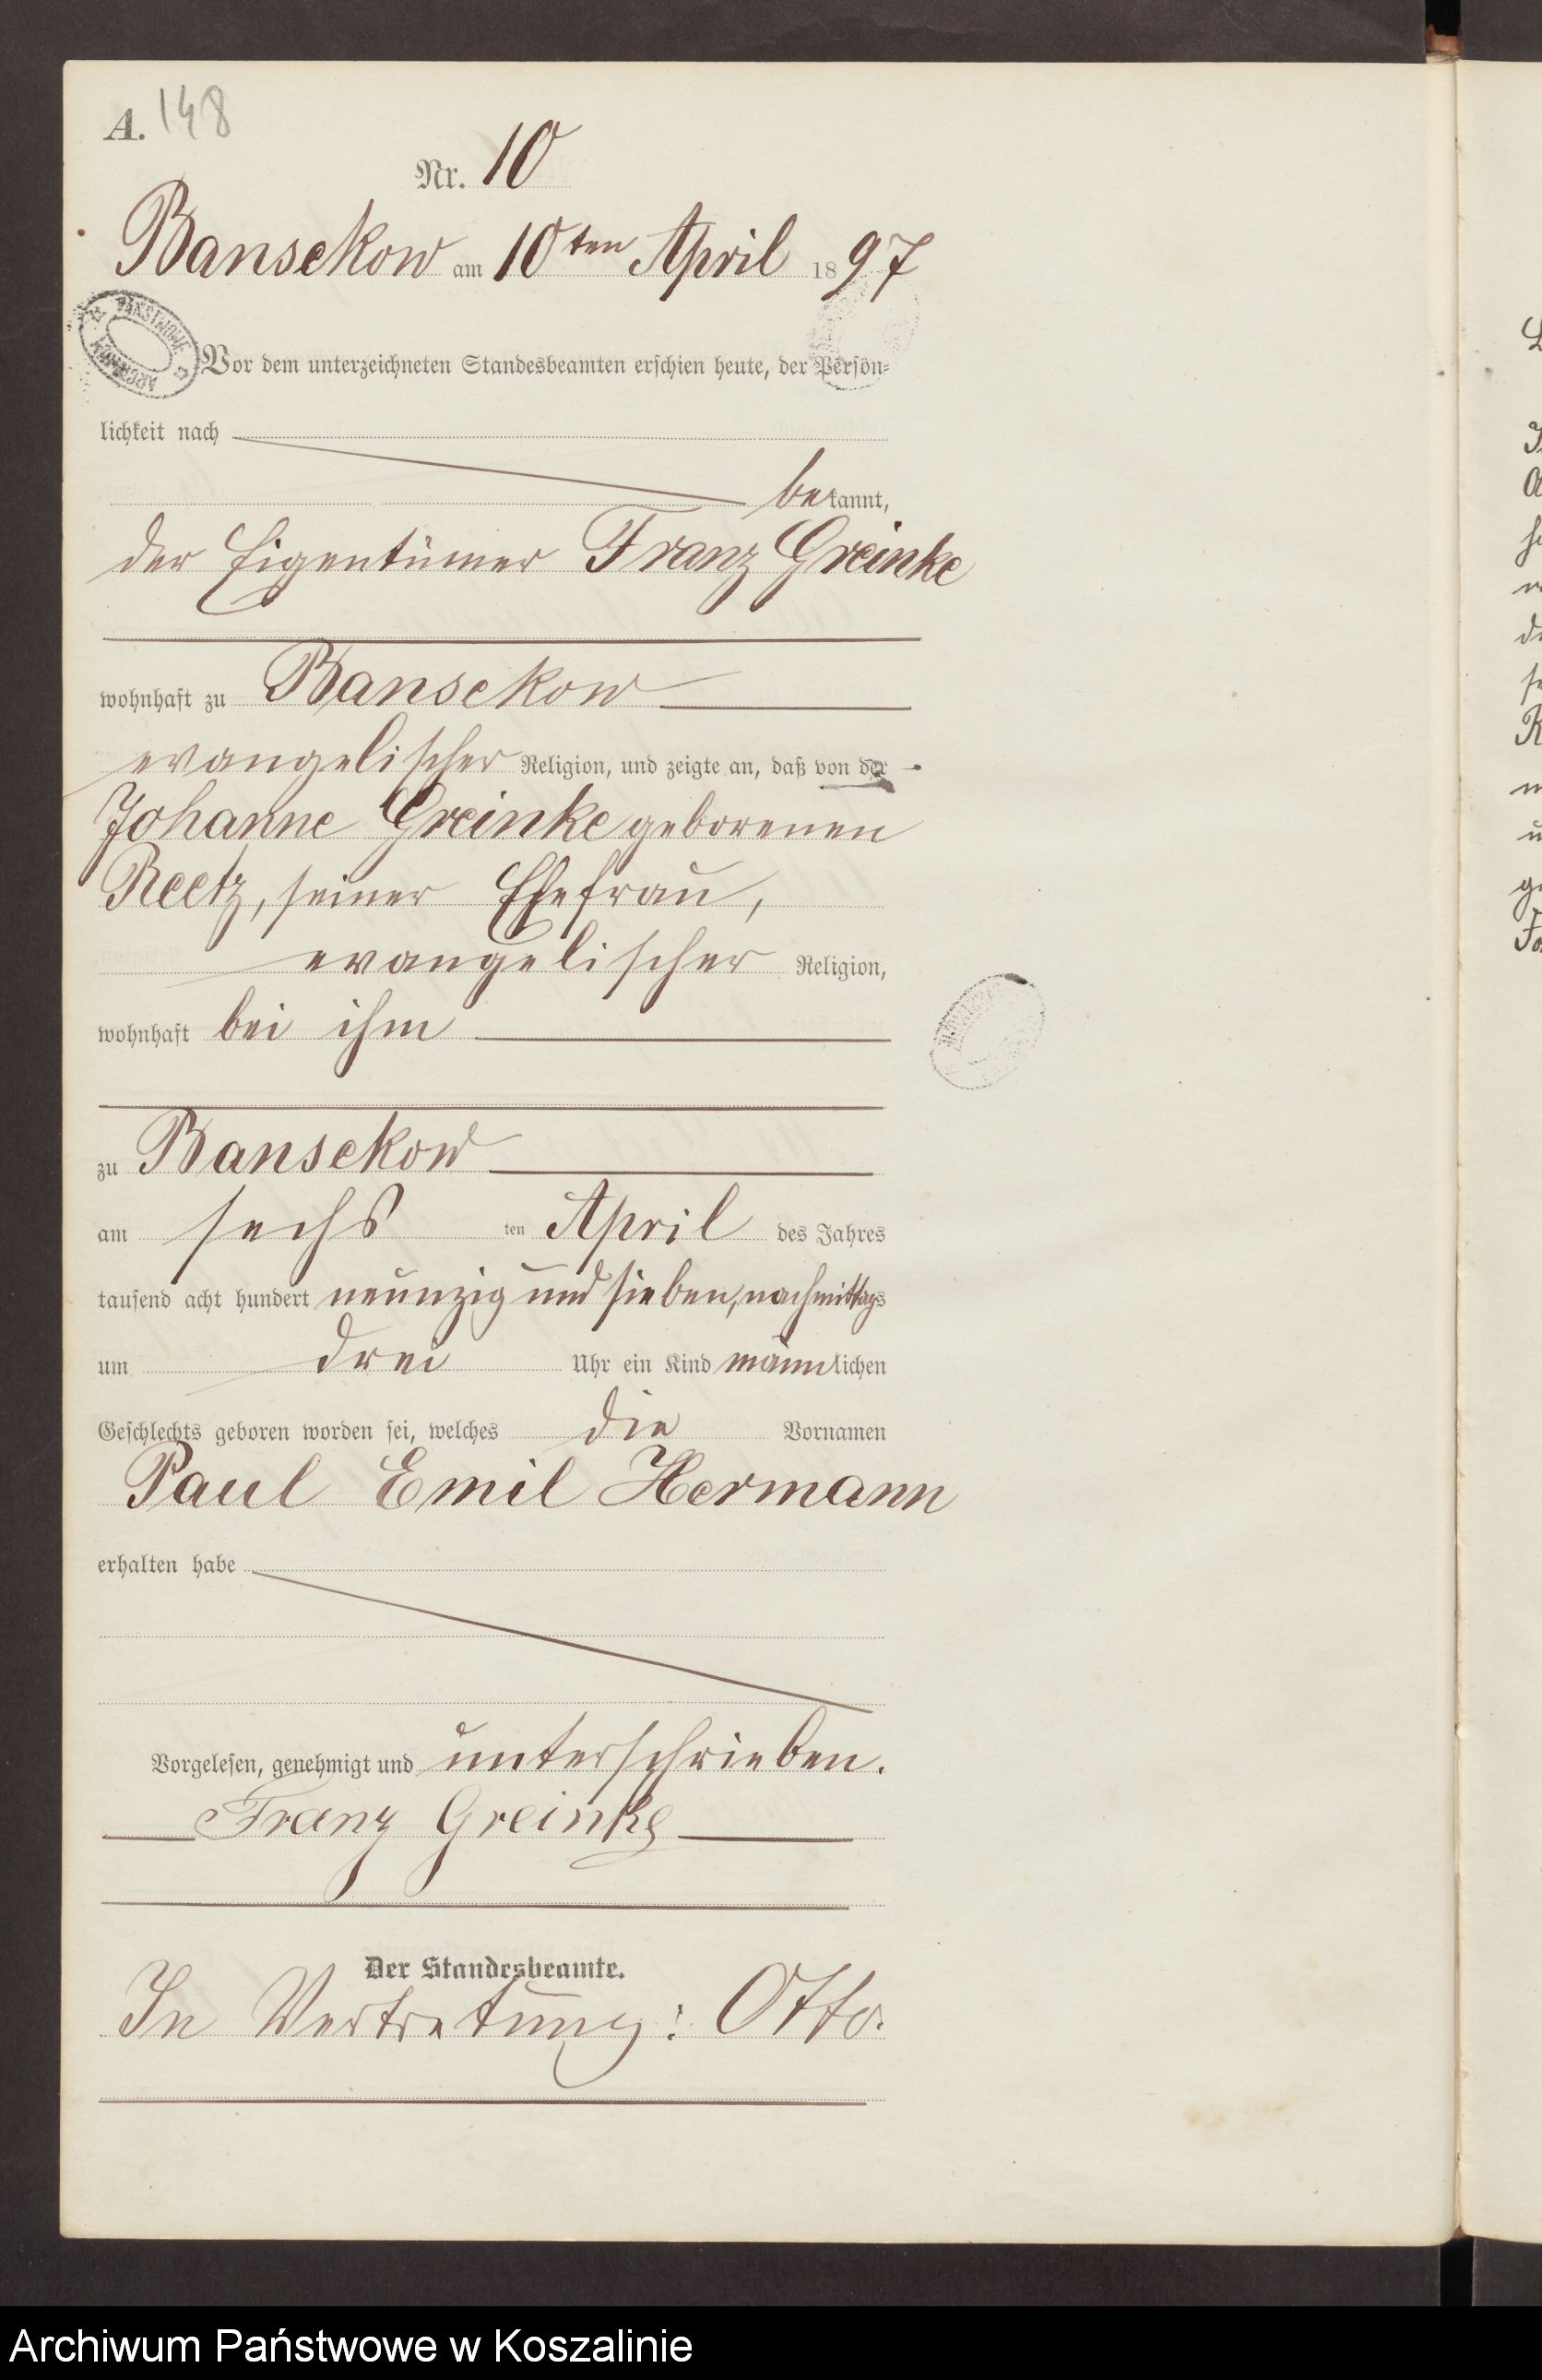 A. 148
Nr. 10
Bansekow am 10ten April 1897
Vor dem unterzeichneten Standesbeamten erschien heute, der Persön-
lichkeit nach
bekannt,
der Eigentümer Franz Greinke
wohnhaft zu Bansekow
evangelischer Religion, und zeigte an, daß von der
Johanne Greinke geborenen
Reetz, seiner Ehefrau,
evangelischer Religion,
wohnhaft bei ihm
zu Bansekow
am sechs ten April des Jahres
tausend acht hundert neunzig und sieben, nachmittags
um drei Uhr ein Kind männlichen
Geschlechts geboren worden sei, welches die Vornamen
Paul Emil Hermann
erhalten habe
Vorgelesen, genehmigt und unterschrieben.
Franz Greinke
Der Standesbeamte.
In Vertretung: Otto.
Archiwum Państwowe w Koszalinie